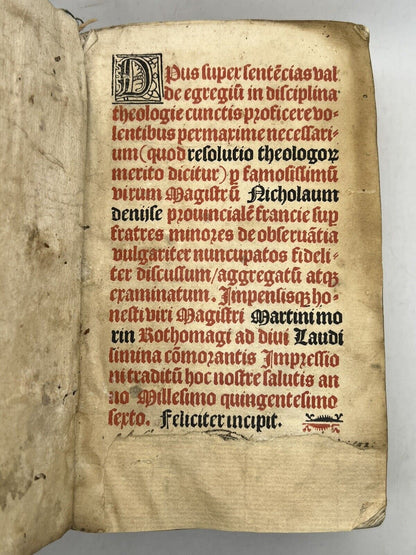 Opus super sentẽcias val
de egregiũ in disciplina
theologie cunctis proficere vo⸗
lentibus permaxime necessari⸗
um (quod resolutio theologoꝝ
merito dicitur) ꝑ famosissimũ
virum Magistrũ Nicholaum
denijse prouincialẽ francie suꝑ
fratres minores de obseruãtia
vulgariter nuncupatos fideli⸗
ter discussum/aggregatũ atqꝫ
examinatum. Impensisqꝫ ho⸗
nesti viri Magistri Martini mo
rin Rothomagi ad diui Laudi
simina cõmorantis Impressio
ni traditũ hoc nostre salutis an
no Millesimo quingentesimo
sexto. Feliciter incipit.